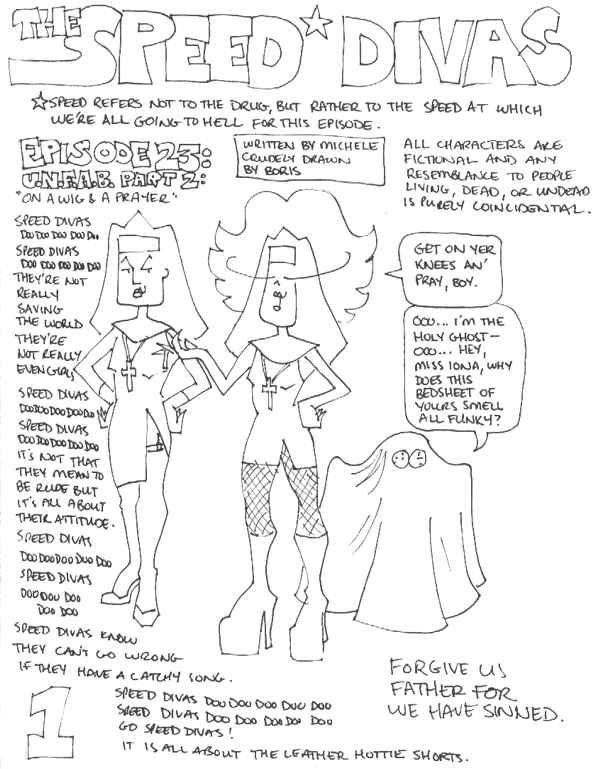 THE SPEED☆DIVAS
☆SPEED REFERS NOT TO THE DRUG, BUT RATHER TO THE SPEED AT WHICH
WE'RE ALL GOING TO HELL FOR THIS EPISODE.
EPISODE 23:
U.N.F.A.B. PART 2:
"ON A WIG & A PRAYER"
WRITTEN BY MICHELE
CRUDELY DRAWN
BY BORIS
ALL CHARACTERS ARE
FICTIONAL AND ANY
RESEMBLANCE TO PEOPLE
LIVING, DEAD, OR UNDEAD
IS PURELY COINCIDENTAL.
SPEED DIVAS
DOO DOO DOO DOO DOO
SPEED DIVAS
DOO DOO DOO DOO DOO
THEY'RE NOT
REALLY
SAVING
THE WORLD
THEY'RE
NOT REALLY
EVEN GIRLS
SPEED DIVAS
DOO DOO DOO DOO DOO
SPEED DIVAS
DOO DOO DOO DOO DOO
IT'S NOT THAT
THEY MEAN TO
BE RUDE BUT
IT'S ALL ABOUT
THEIR ATTITUDE.
SPEED DIVAS
DOO DOO DOO DOO DOO
SPEED DIVAS
DOO DOO DOO
DOO DOO
SPEED DIVAS KNOW
THEY CAN'T GO WRONG
IF THEY HAVE A CATCHY SONG.
SPEED DIVAS DOO DOO DOO DOO DOO
SPEED DIVAS DOO DOO DOO DOO DOO
GO SPEED DIVAS!
IT IS ALL ABOUT THE LEATHER HOTTIE SHORTS.
GET ON YER
KNEES AN'
PRAY, BOY.
OOO... I'M THE
HOLY GHOST—
OOO... HEY,
MISS IONA, WHY
DOES THIS
BEDSHEET OF
YOURS SMELL
ALL FUNKY?
FORGIVE US
FATHER FOR
WE HAVE SINNED.
1